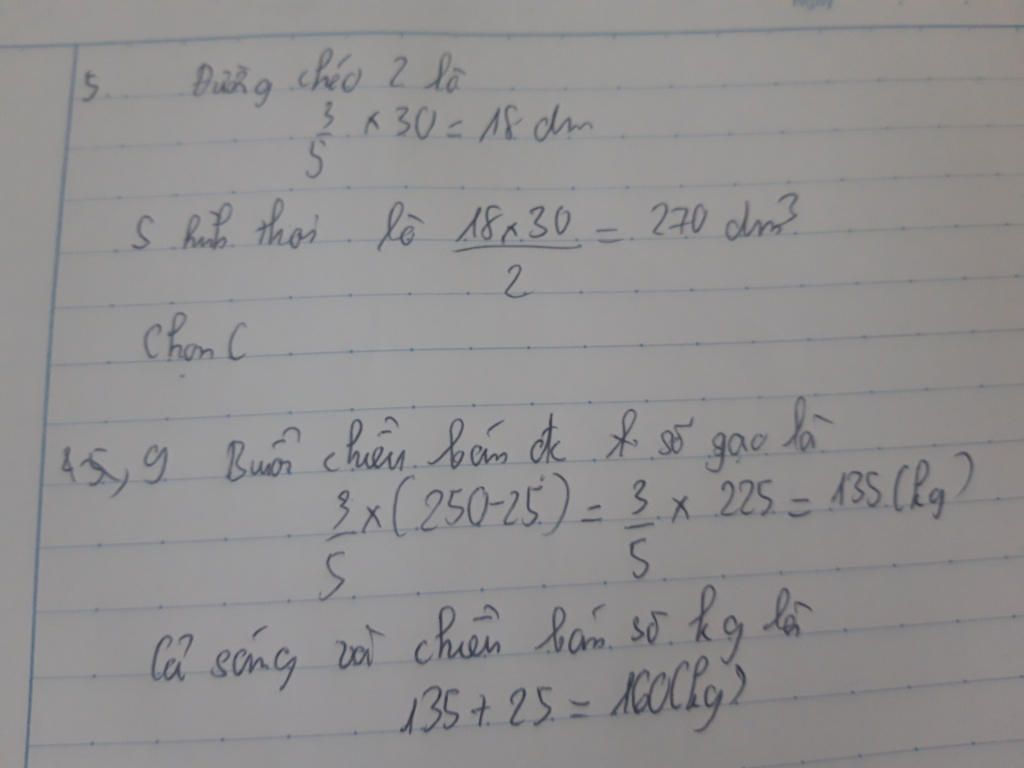 5. Đường chéo 2 là
3/5 × 30 = 18 dm
S hình thoi là (18×30)/2 = 270 dm³
Chọn C
9 Buổi chiều bán đc số gạo là
3/5 × (250-25) = 3/5 × 225 = 135 (kg)
Cả sáng và chiều bán số kg là
135 + 25 = 160 (kg)